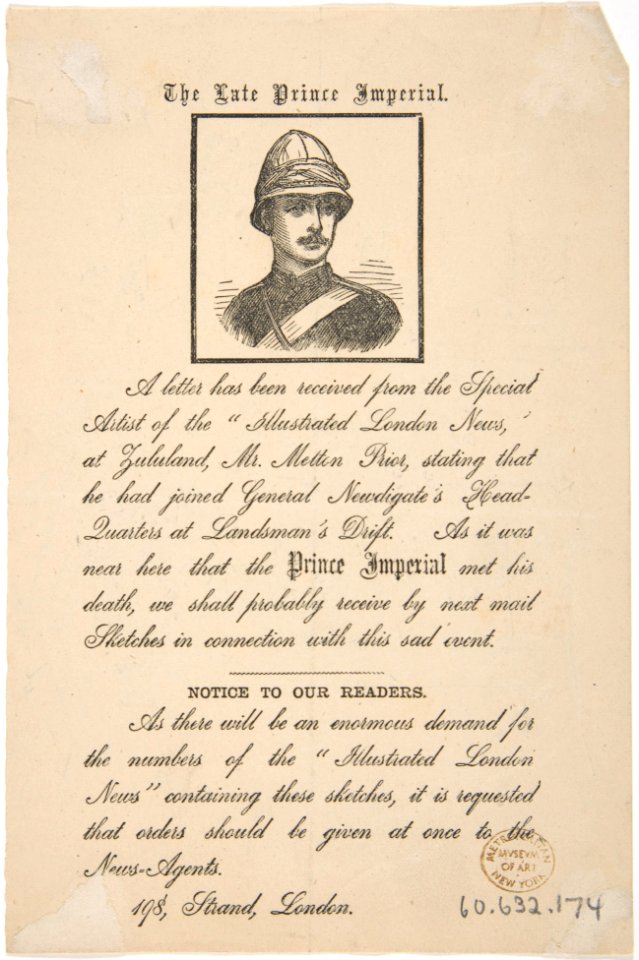 The Late Prince Imperial.
A letter has been received from the Special
Artist of the "Illustrated London News,'
at Zululand, Mr. Melton Prior, stating that
he had joined General Newdigate's Head-
Quarters at Landsman's Drift. As it was
near here that the Prince Imperial met his
death, we shall probably receive by next mail
Sketches in connection with this sad event.
NOTICE TO OUR READERS.
As there will be an enormous demand for
the numbers of the "Illustrated London
News" containing these sketches, it is requested
that orders should be given at once to the
News-Agents.
198, Strand, London.
METROPOLITAN
MVSEVM
OF ART
NEW YORK
60.632.174